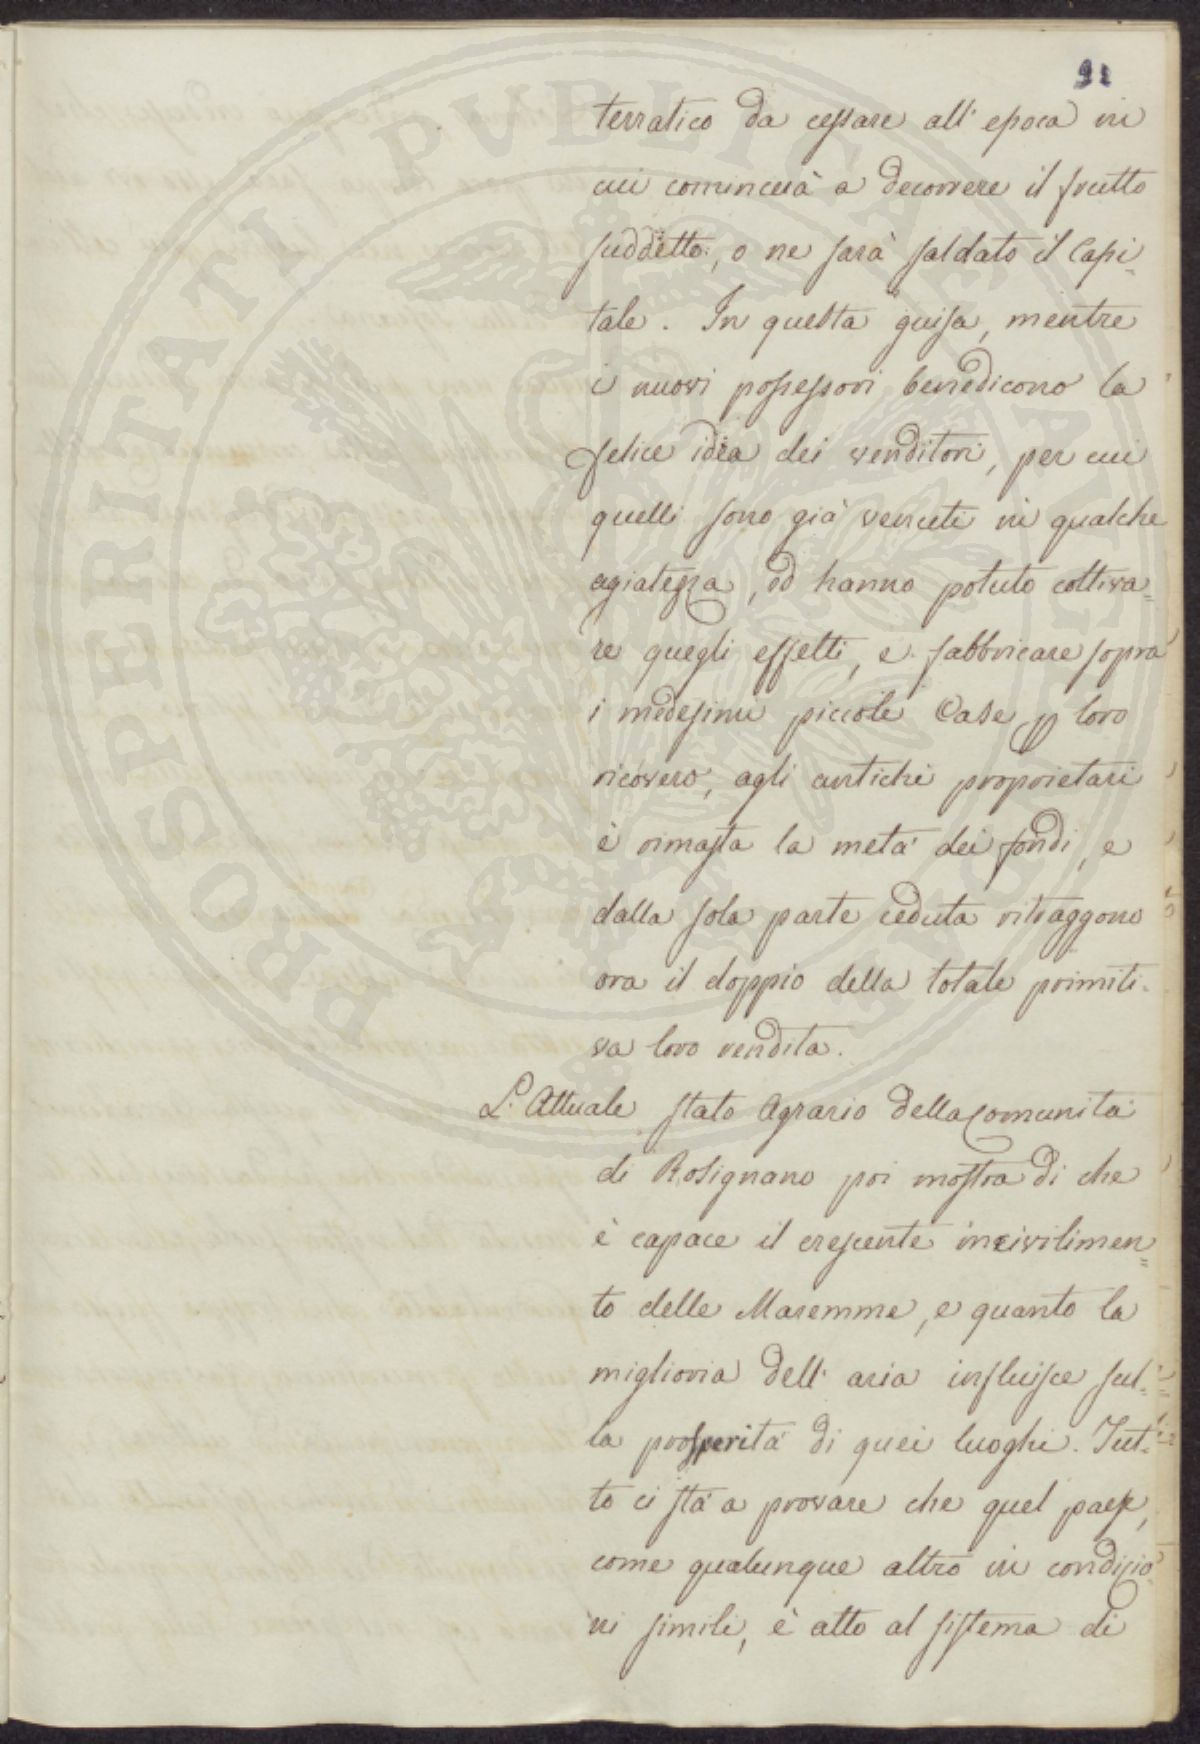 91
terratico da cessare all'epoca in
cui comincerà a decorrere il frutto
suddetto, o ne sarà saldato il Capi-
tale. In questa guisa, mentre
i nuovi possessori benedicono la
felice idea dei venditori, per cui
quelli sono già venuti in qualche
agiatezza, ed hanno potuto coltiva=
re quegli effetti, e fabbricare sopra
i medesimi piccole Case p loro
ricovero, agli antichi proprietari
è rimasta la metà dei fondi, e
dalla sola parte ceduta ritraggono
ora il doppio della totale primiti-
va loro vendita.
L'Attuale stato Agrario della Comunità
di Rosignano poi mostra di che
è capace il crescente incivilimen=
to delle Maremme, e quanto la
miglioria dell'aria influisce sul-
la prosperità di quei luoghi. Tut-
to ci stà a provare che quel paese,
come qualunque altro in condizio
ni simili, è atto al sistema di
PROSPERITATI PVBLICAE AVGENDAE